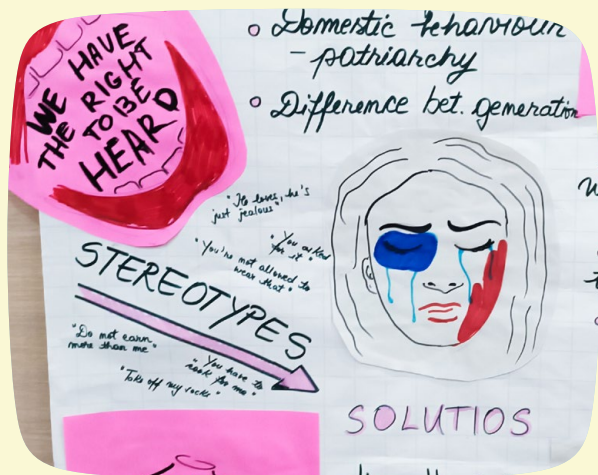 WE HAVE
THE RIGHT
TO BE
HEARD
Domestic behaviour
- patriarchy
Difference bet. generation
"He loves, he's
just jealous"
"You asked
for it"
"You're not allowed to
wear that"
STEREOTYPES
"Do not earn
more than me"
"You have to
cook for me"
"Take off my socks"
SOLUTIOS